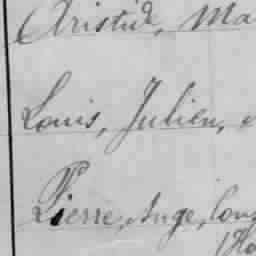 Aristide, Ma
Louis, Julien,
Pierre, Ange,